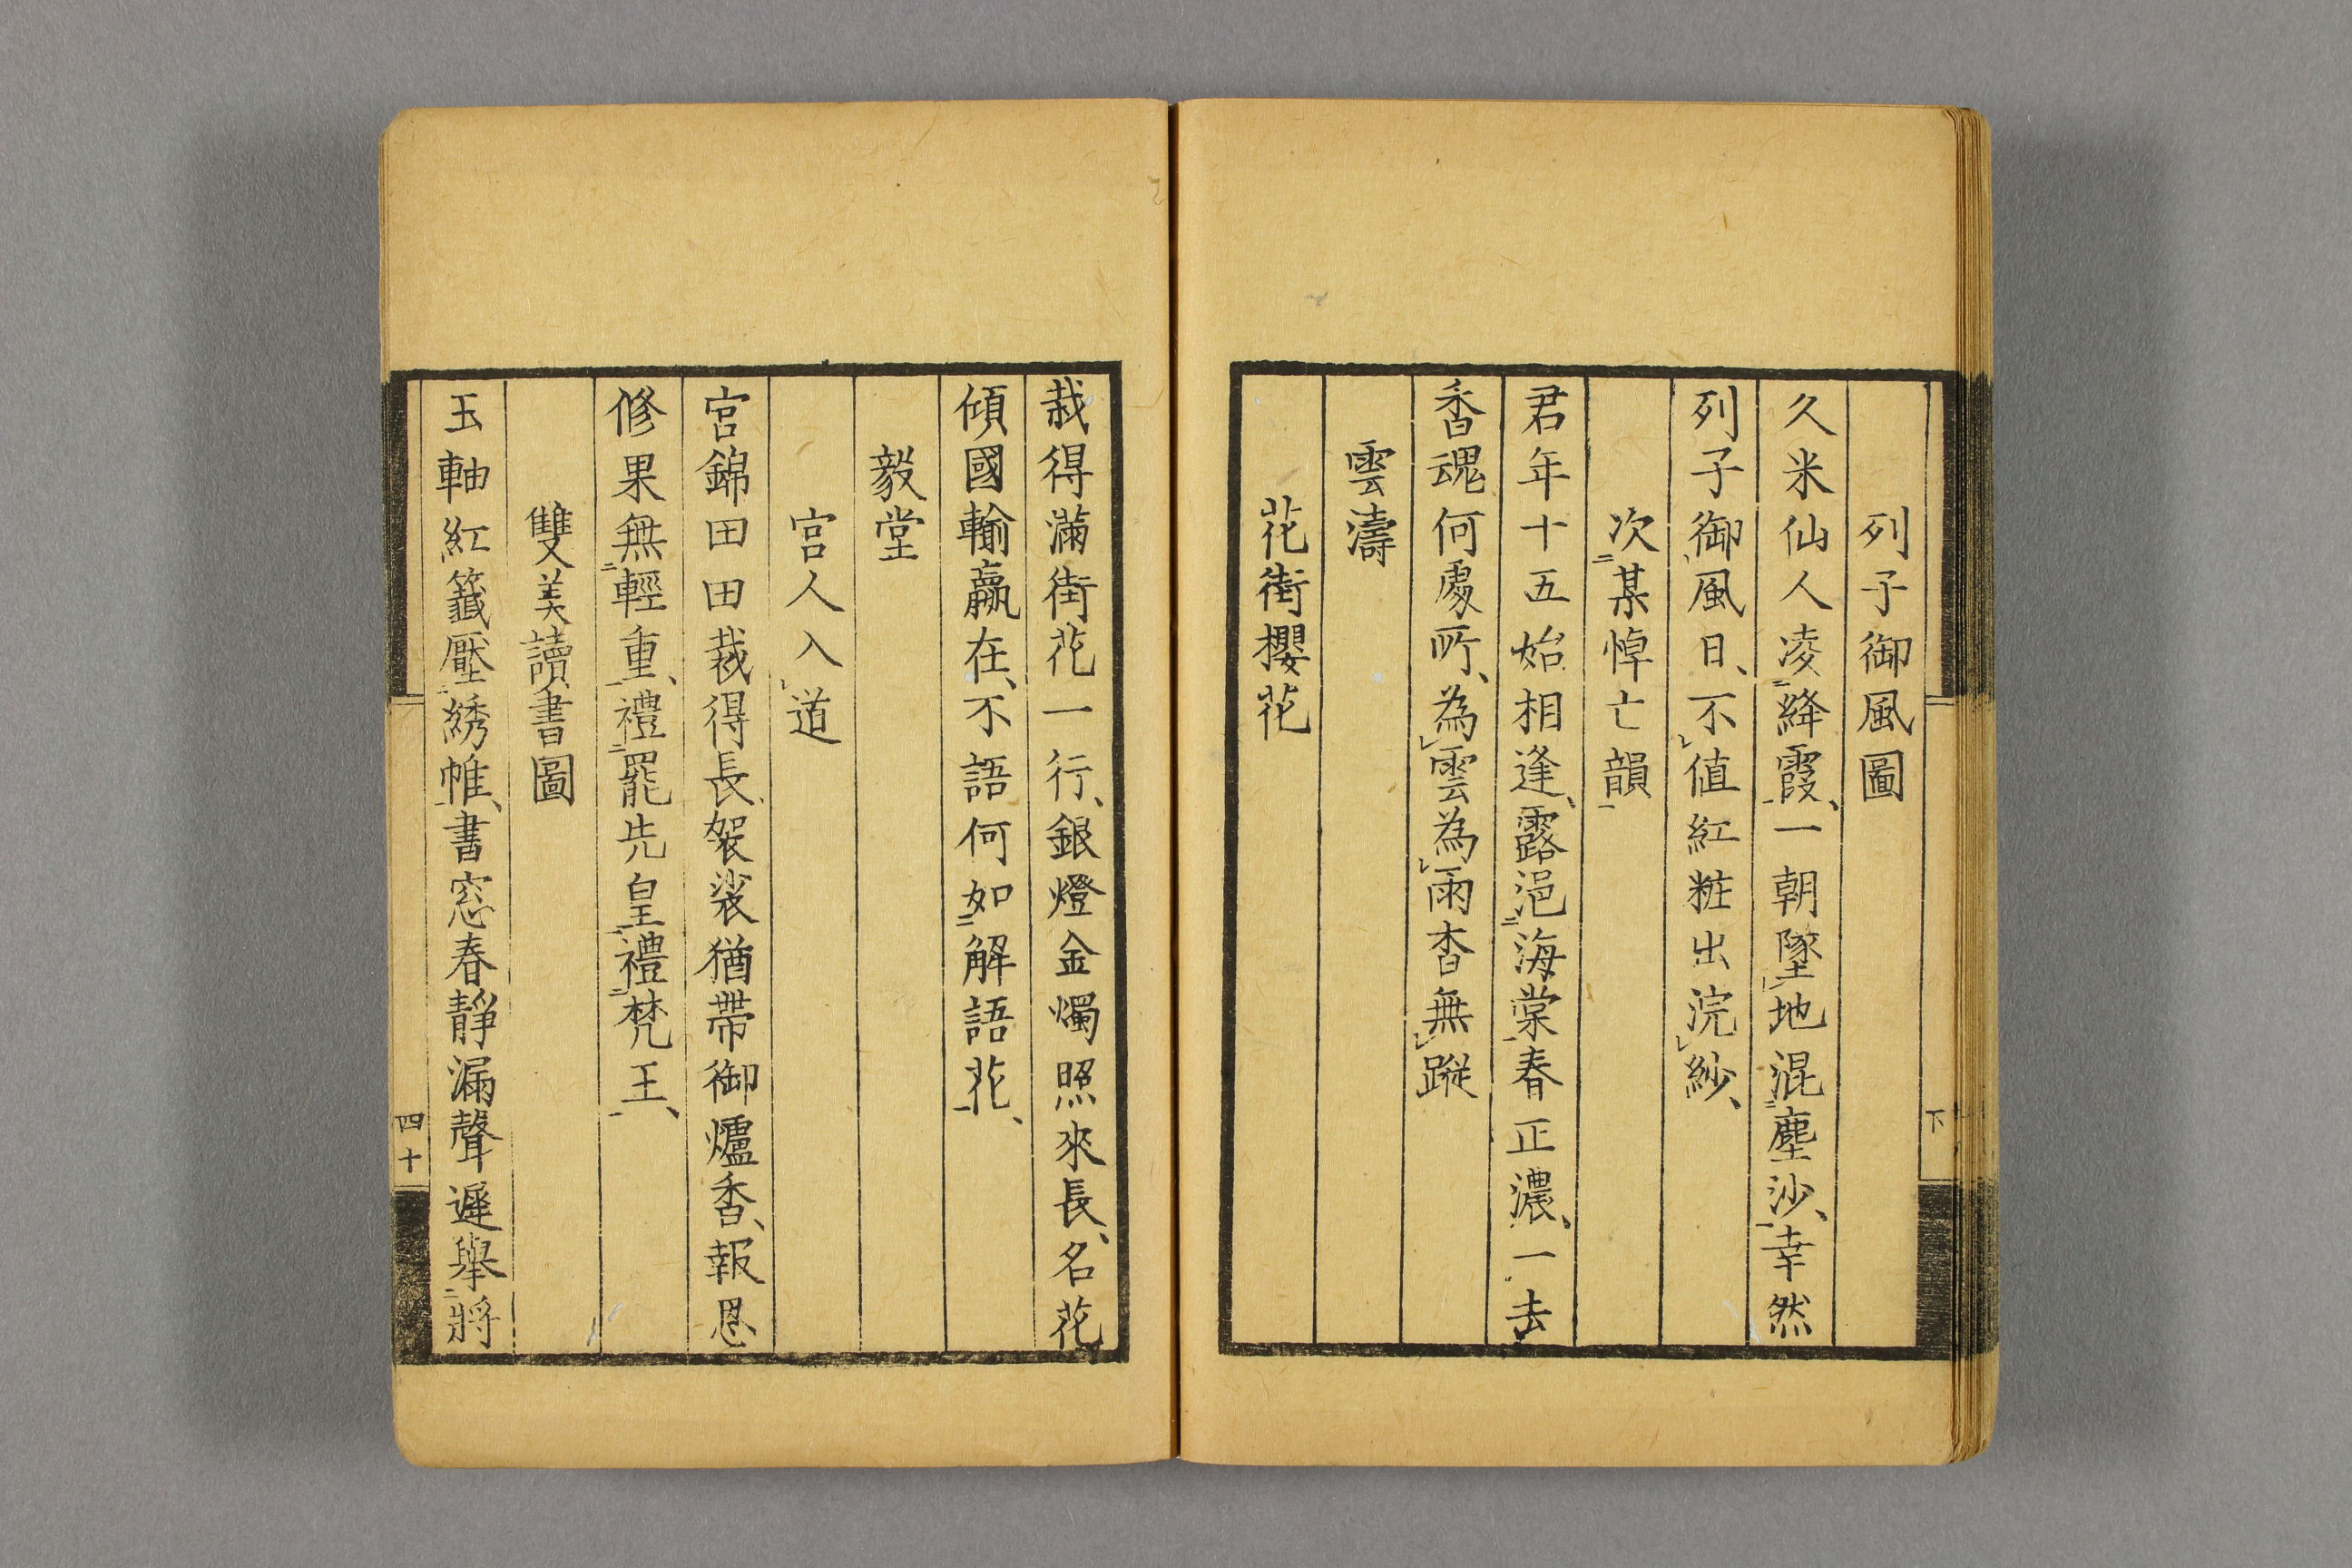 列子御風圖
久米仙人凌絳霞、一朝墜地混塵沙、幸然
列子御風日、不值紅粧出浣紗、
次某悼亡韻
君年十五始相逢、露浥海棠春正濃、一去
香魂何處所、為雲為雨杳無蹤
雲濤
花街櫻花
下
栽得滿街花一行、銀燈金燭照來長、名花
傾國輸贏在、不語何如解語花、
毅堂
宮人入道
宮錦田田裁得長、袈裟猶帶御爐香、報恩
修果無輕重、禮罷先皇禮梵王、
雙美讀書圖
玉軸紅籤壓綉帷、書窓春靜漏聲遲舉將
四十